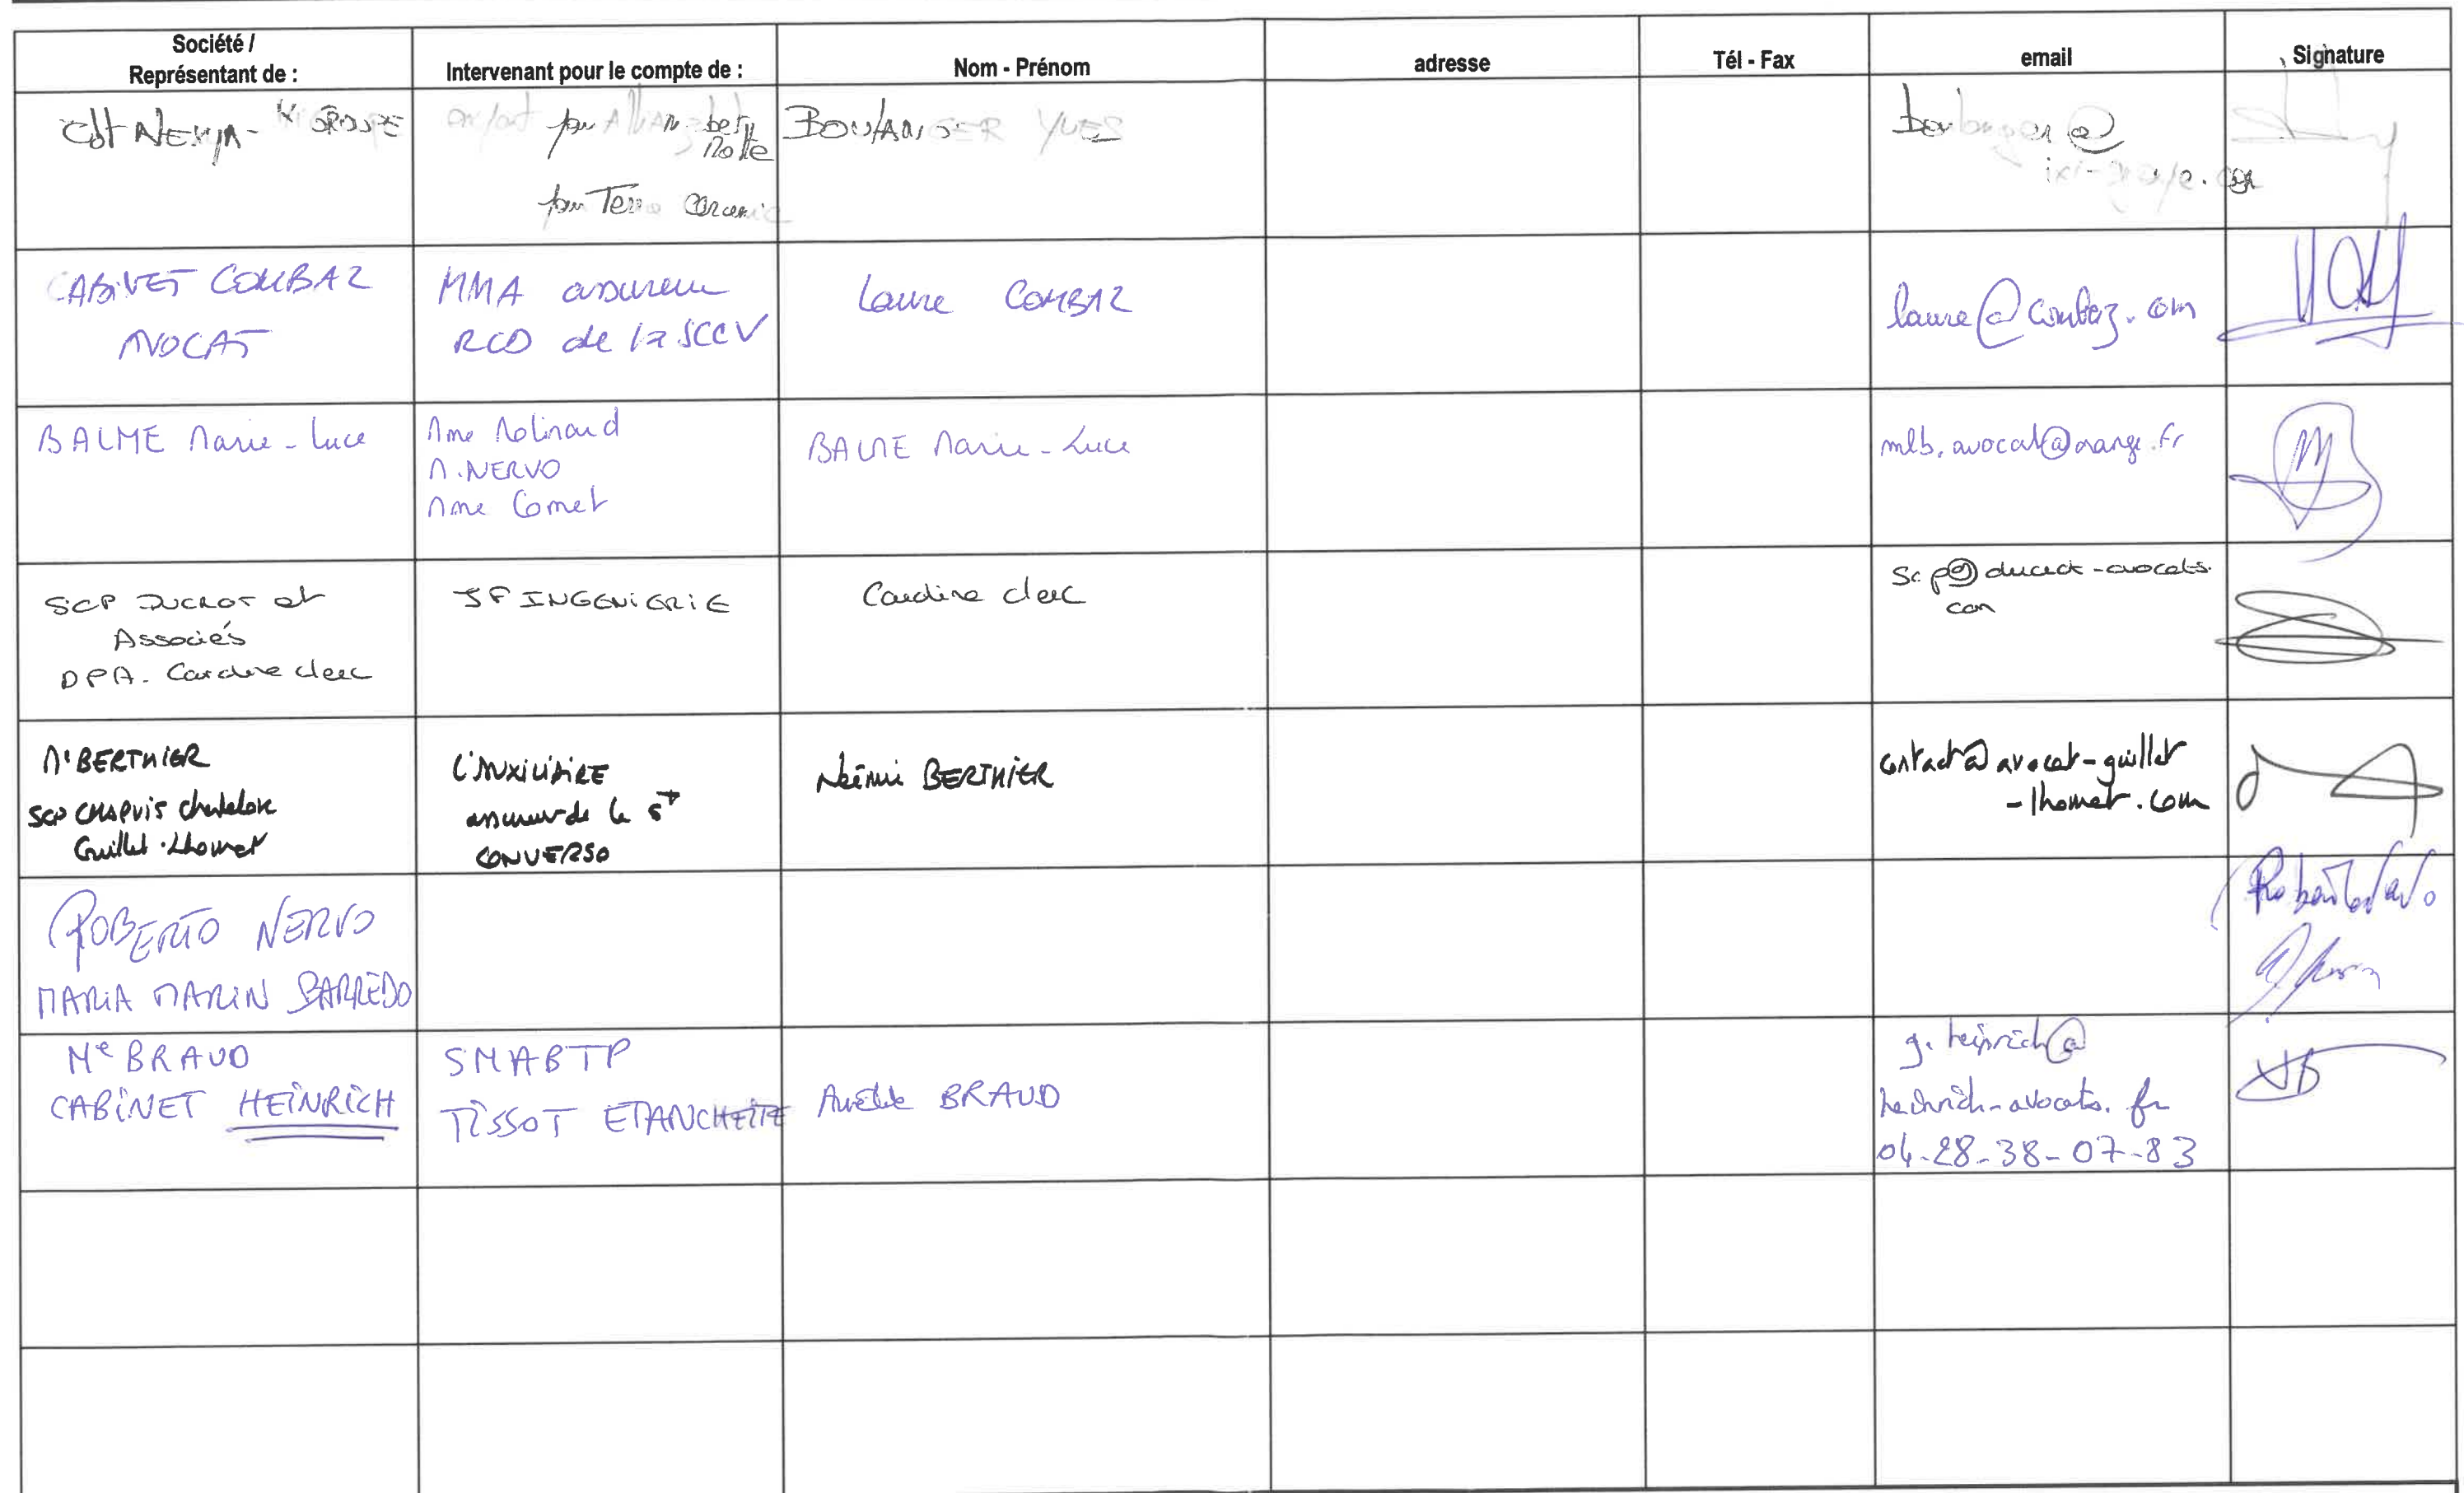 Société /
Représentant de :
Intervenant pour le compte de :
Nom - Prénom
adresse
Tél - Fax
email
Signature
GROUPE
pour
pour Terre
BOULANGER YVES
boulanger@
ixi-groupe.com
CABINET COMBAZ
AVOCAT
MMA assureur
RCD de la SCCV
Laure COMBAZ
laure@combaz.com
BALME Marie-Luce
Mme Molinard
M. NERVO
Mme Comet
BALME Marie-Luce
mlb.avocat@orange.fr
SCP DUCROT et
Associés
DPA. Caroline Clerc
JF INGENIERIE
Caroline Clerc
scp@ducrot-avocats.
com
Me BERTHIER
SCP CHAPUIS Chantelove
Guillet Lhomet
L'AUXILIAIRE
assureur de la sté
CONVERSO
Noémie BERTHIER
contact@avocat-guillet
-lhomet.com
ROBERTO NERVO
MARIA MARIN BARREDO
Me BRAUD
CABINET HEINRICH
SMABTP
TISSOT ETANCHEITE
Aurélie BRAUD
g.heinrich@
heinrich-avocats.fr
04-28-38-07-83